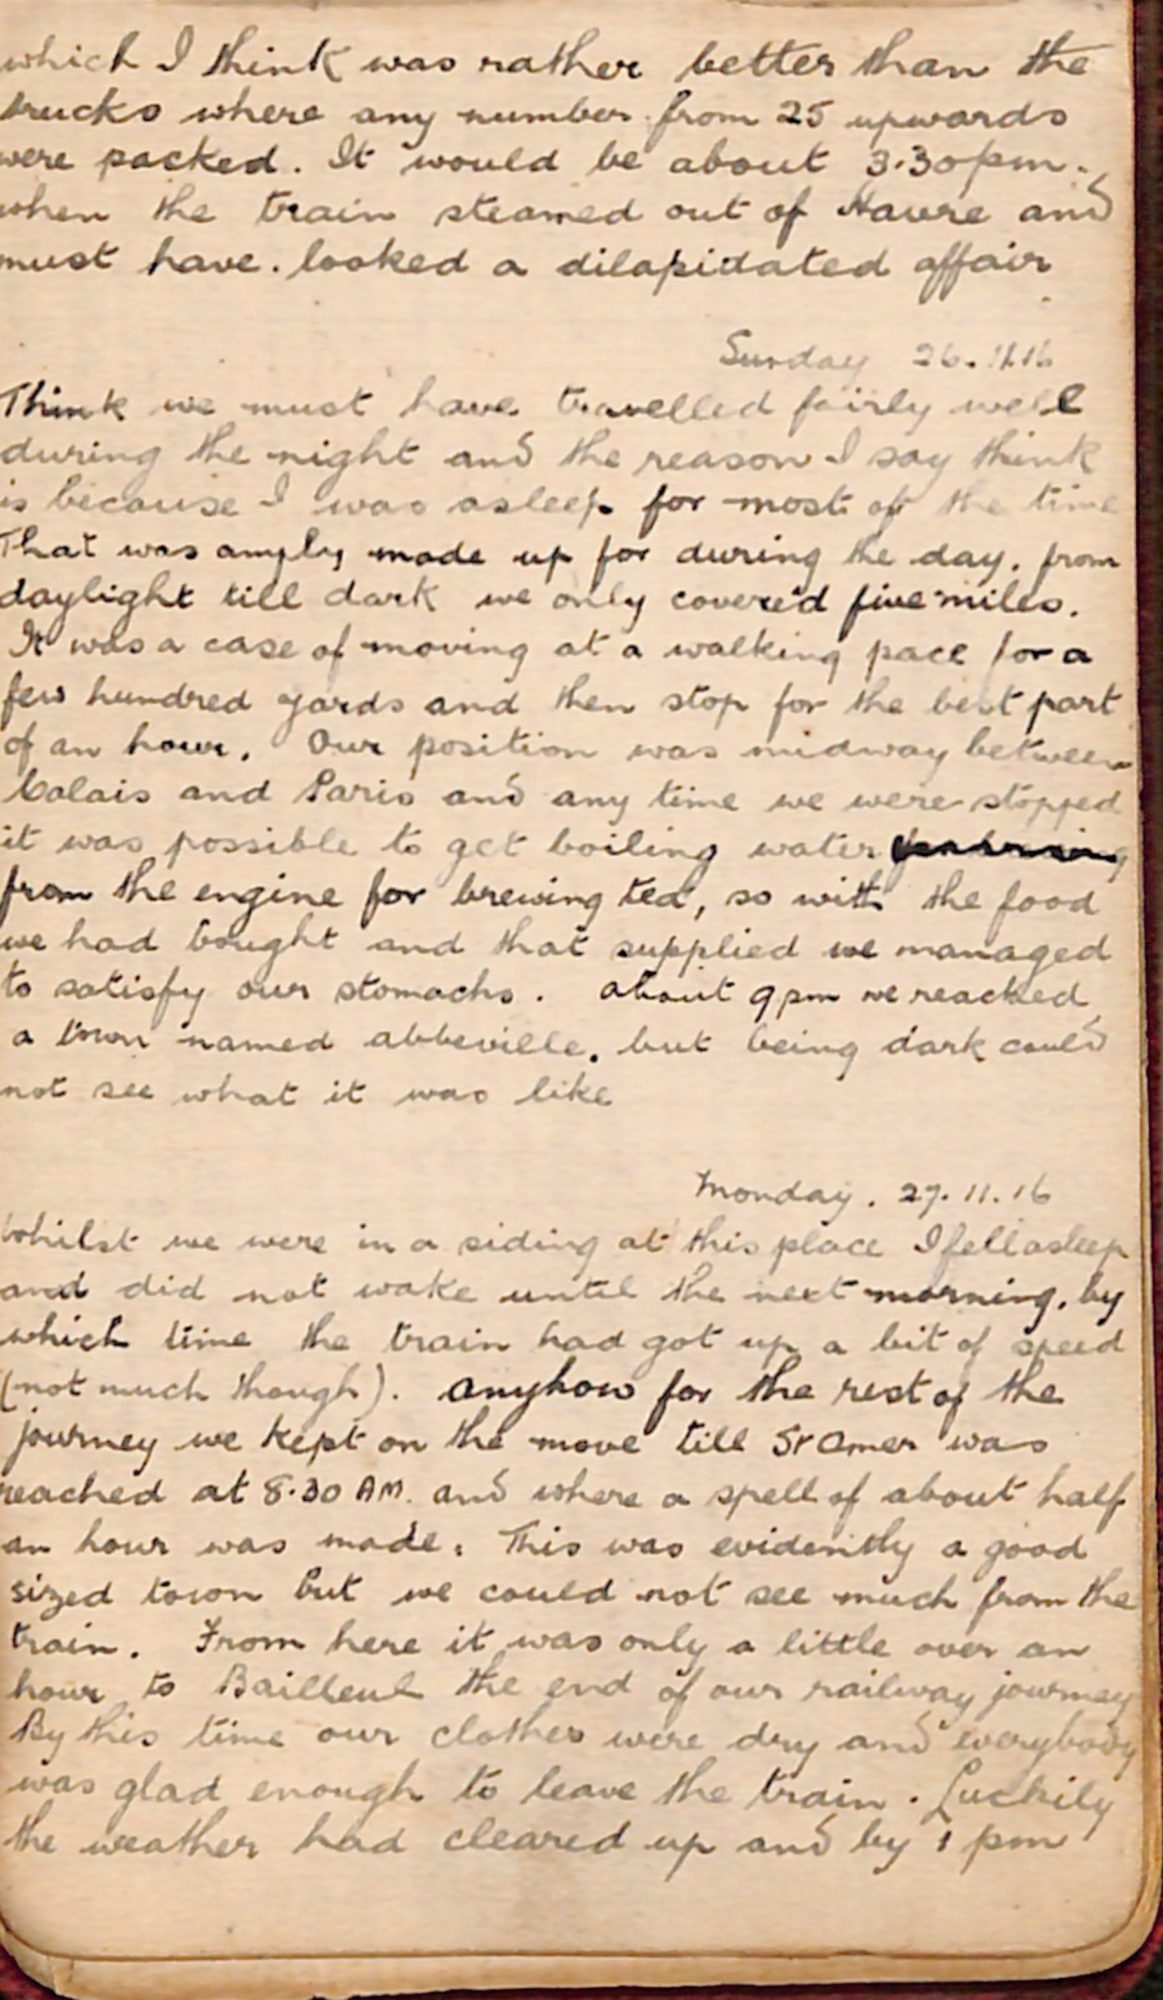 which I think was rather better than the
trucks where any number from 25 upwards
were packed. It would be about 3.30 pm.
when the train steamed out of Havre and
must have. looked a dilapidated affair
Sunday 26.11.16
Think we must have travelled fairly well
during the night and the reason I say think
is because I was asleep for most of the time
That was amply made up for during the day, from
daylight till dark we only covered five miles.
It was a case of moving at a walking pace for a
few hundred yards and then stop for the best part
of an hour. Our position was midway between
Calais and Paris and any time we were stopped
it was possible to get boiling water
from the engine for brewing tea, so with the food
we had bought and that supplied we managed
to satisfy our stomachs. about 9 pm we reached
a town named abbeville, but being dark could
not see what it was like
Monday. 27.11.16
Whilst we were in a siding at this place I fell asleep
and did not wake until the next morning, by
which time the train had got up a bit of speed
(not much though). anyhow for the rest of the
journey we kept on the move till St Omer was
reached at 8.30 AM. and where a spell of about half
an hour was made. This was evidently a good
sized town but we could not see much from the
train. From here it was only a little over an
hour to Bailleul the end of our railway journey
By this time our clothes were dry and everybody
was glad enough to leave the train. Luckily
the weather had cleared up and by 1 pm